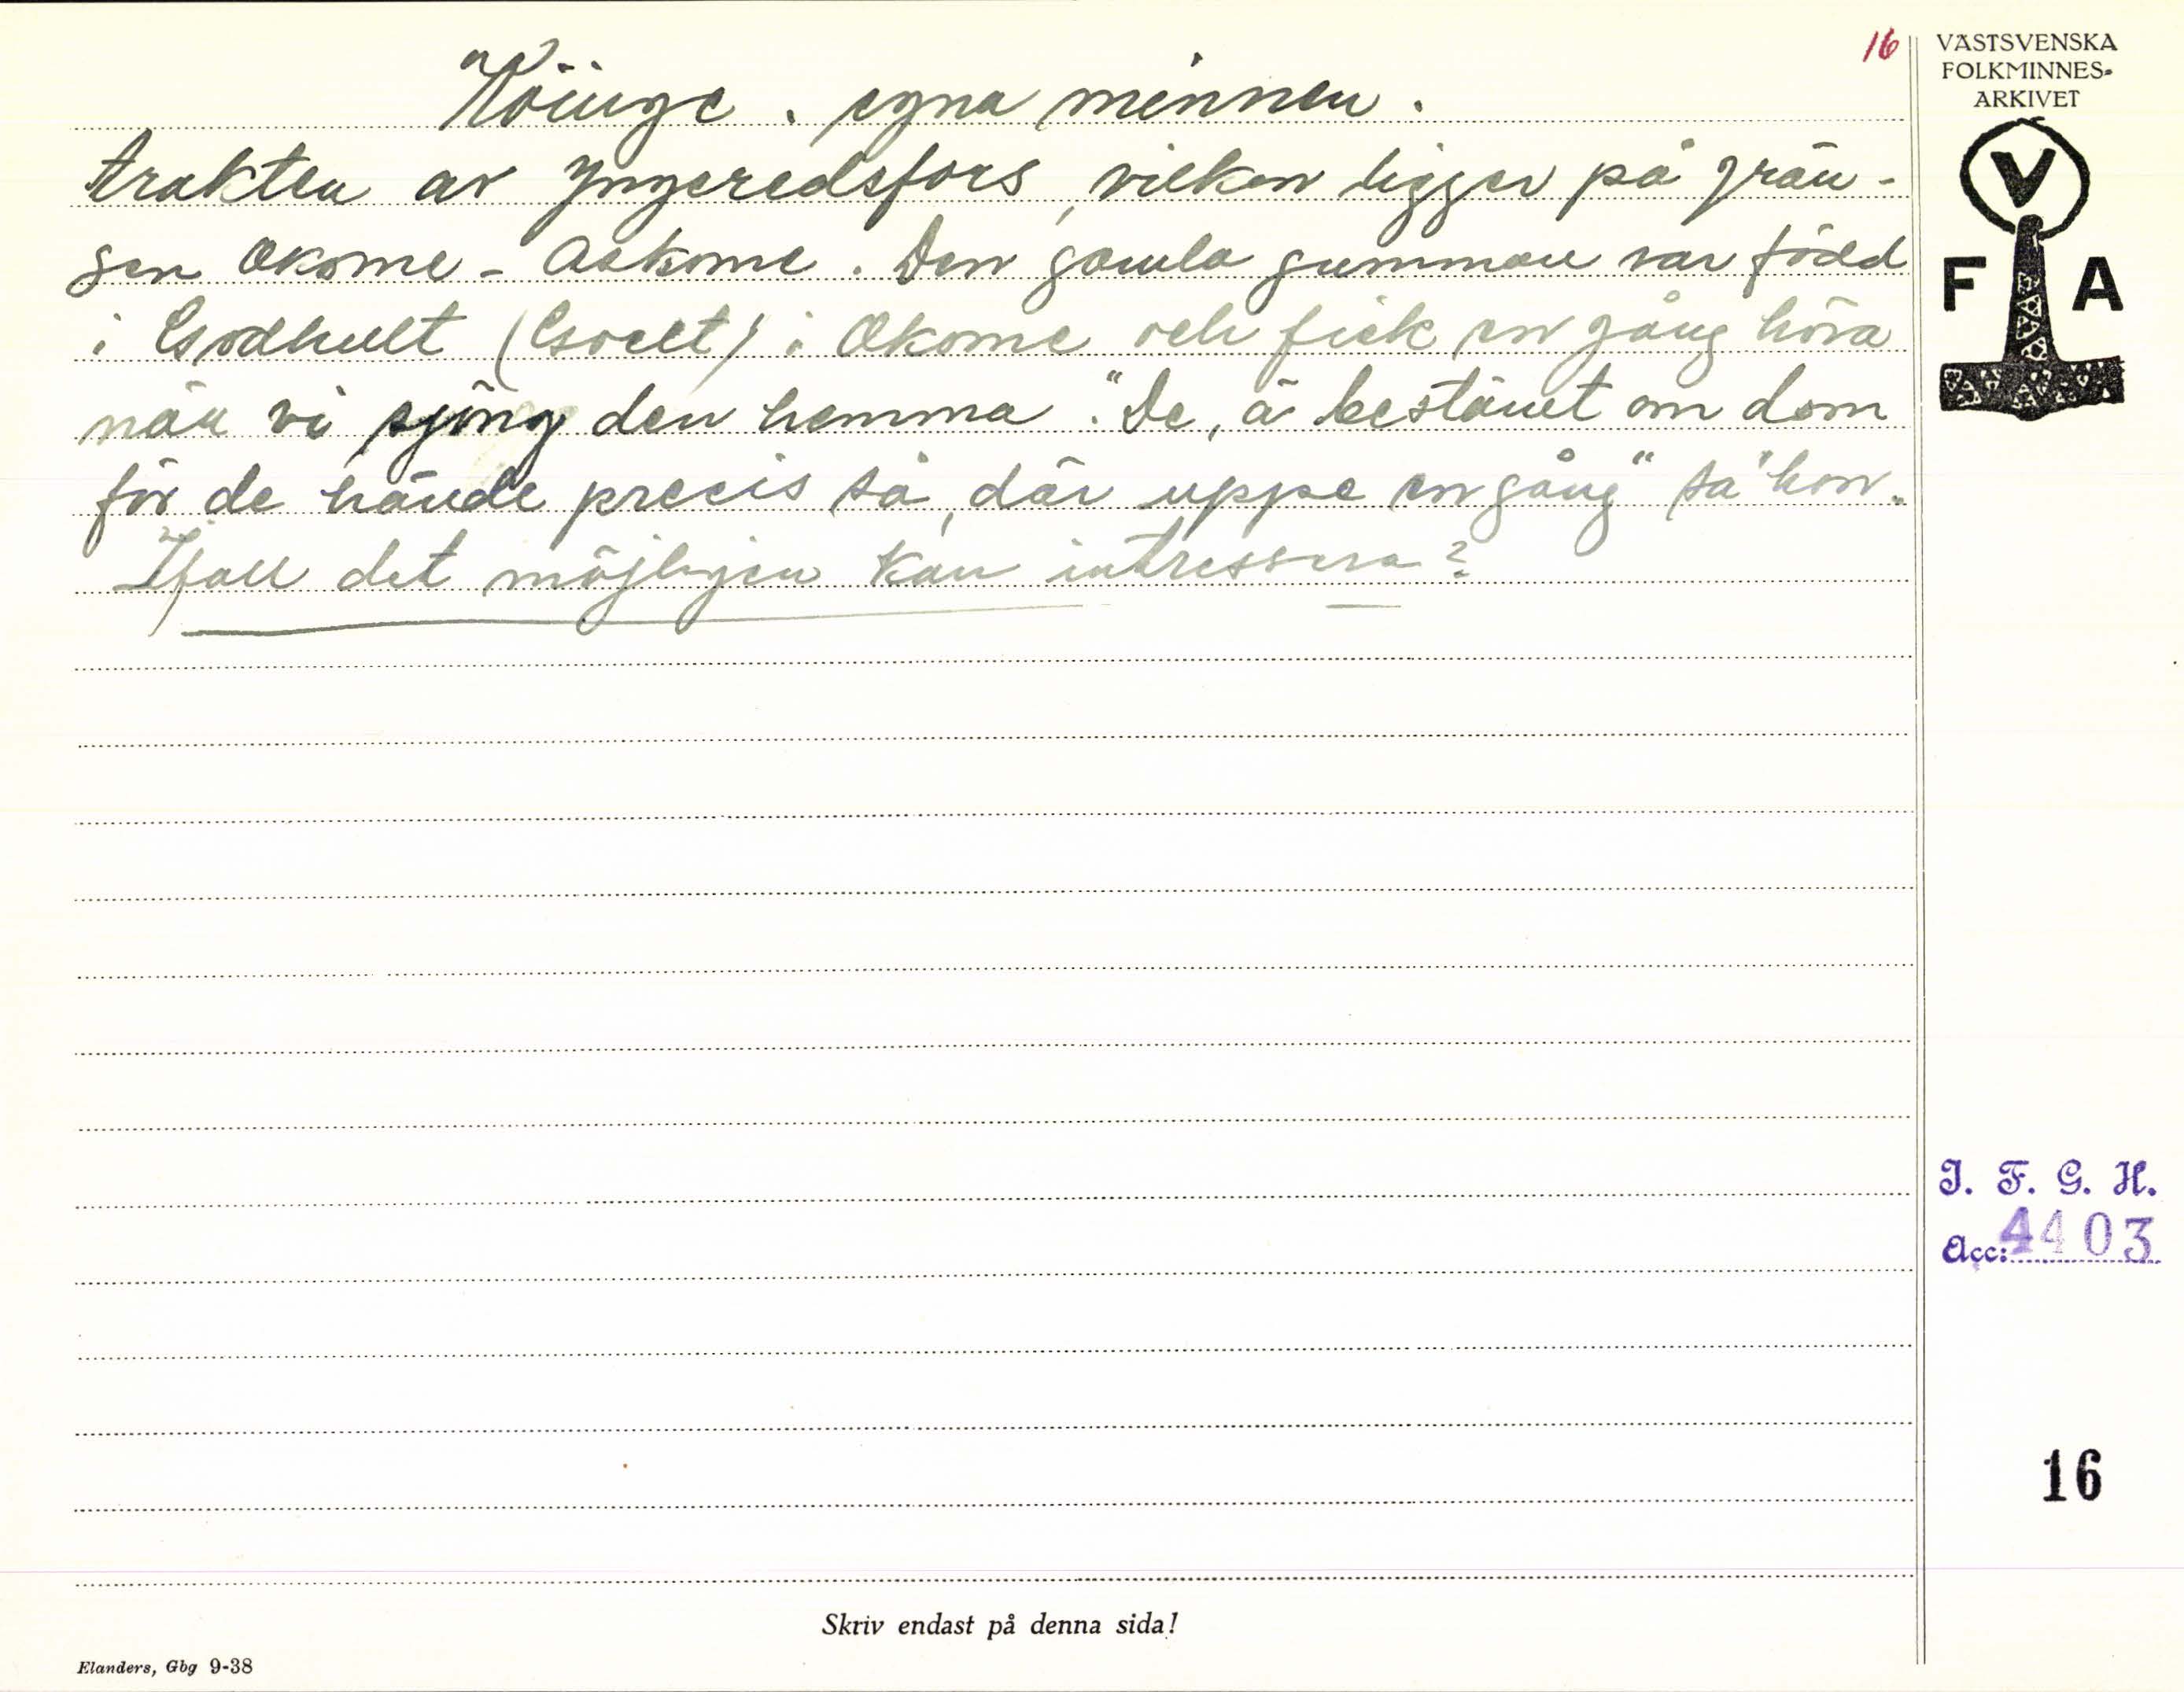 16
Köinge. egna minnen.
trakten av Yngeredsfors, vilken ligger på grän-
sen Okome - Askome. Den gamla gumman var född
i Esrödhult (Esrölt) i Okome och fick en gång höra
när vi sjöng den hemma. "De, ä bestämt om dom
för de hände precis så, där uppe en gång" sa' hon.
Ifall det möjligen kan intressera?
VÄSTSVENSKA
FOLKMINNES-
ARKIVET
V
F A
I. F. G. H.
Acc: 4403
16
Skriv endast på denna sida!
Elanders, Gbg 9-38